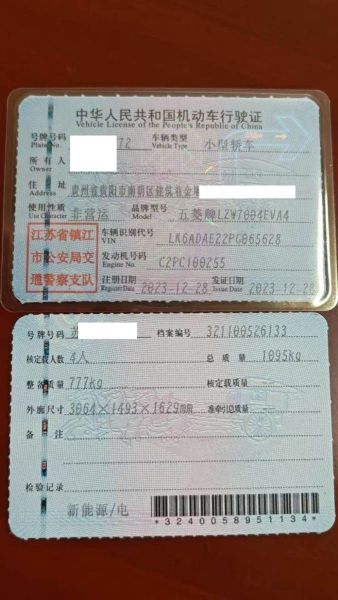 中华人民共和国机动车行驶证
Vehicle License of the People's Republic of China
号牌号码 72 车辆类型 小型轿车
Plate No. Vehicle Type
所有人
Owner
住址 贵州省贵阳市南明区
Address
使用性质 非营运 品牌型号 五菱牌LZW7004EVA4
Use Character Model
江苏省镇江 车辆识别代号 LK6ADAE22PG065628
VIN
市公安局交 发动机号码 C2PC100255
Engine No.
通警察支队 注册日期 2023-12-28 发证日期 2023-12-28
Register Date Issue Date
号牌号码 苏 档案编号 321100526133
核定载人数 4人 总质量 1095kg
整备质量 777kg 核定载质量
外廓尺寸 3064×1493×1629mm 准牵引总质量
备注
检验记录
新能源/电
*3240058951134*